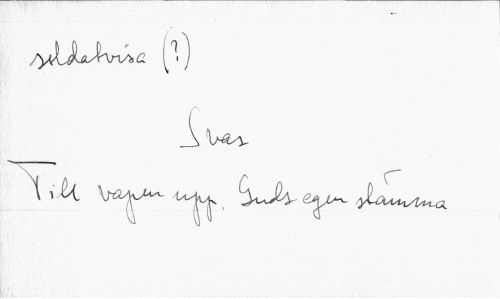 soldatvisa (?)
Svas
Till vapen upp. Guds egen stämma